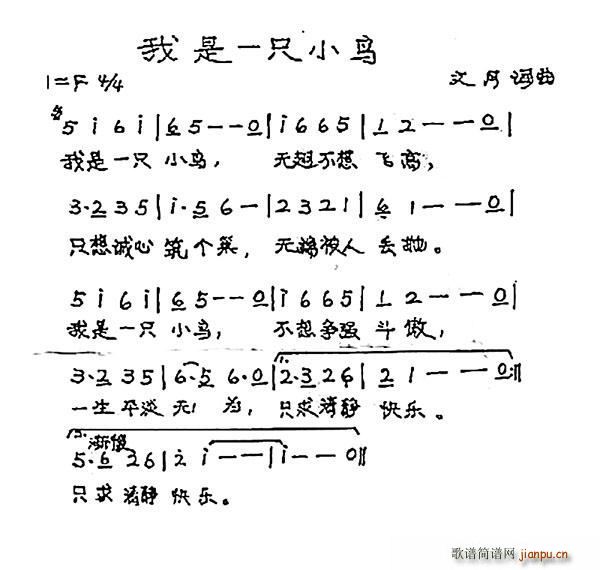 我是一只小鸟
1=F 4/4
文月 词曲
5 i 6 i | 6 5 - - 0 | i 6 6 5 | 1 2 - - 0 |
我是一只 小鸟， 不想 飞高，
3·2 3 5 | i·5 6 - | 2 3 2 1 | 6 1 - - 0 |
只想诚心 筑个巢， 无 被人 丢抛。
5 i 6 i | 6 5 - - 0 | i 6 6 5 | 1 2 - - 0 |
我是一只 小鸟， 不想争强 斗傲，
3·2 3 5 | 6·5 6·0 | 1. 2·3 2 6 | 2 1 - - 0 :||
一生平淡 无 为， 只求清静 快乐。
2. 渐慢
5·6 2 6 | 2 i - - | i - - 0 ||
只求清静 快乐。
歌谱简谱网 jianpu.cn